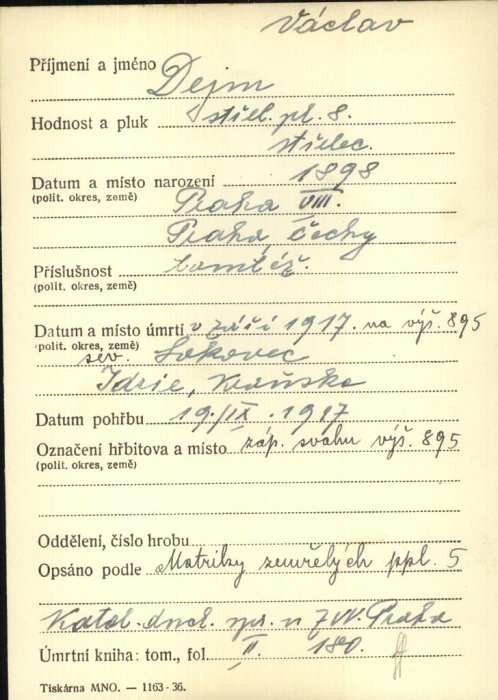 Václav
Příjmení a jméno Dejm
Hodnost a pluk střel. pl. 8.
střelec.
Datum a místo narození 1898
(polit. okres, země) Praha VIII.
Praha, Čechy
Příslušnost tamtéž.
(polit. okres, země)
Datum a místo úmrtí v září 1917. na výš. 895
(polit. okres, země)
sev. Lokovec
Idrie, Kraňsko
Datum pohřbu 19./IX. 1917
Označení hřbitova a místo záp. svahu výš. 895
(polit. okres, země)
Oddělení, číslo hrobu
Opsáno podle Matriky zemřelých ppl. 5
Katol. duch. spr. u ZVV. Praha
Úmrtní kniha: tom., fol. II. 180.
Tiskárna MNO. — 1163-36.